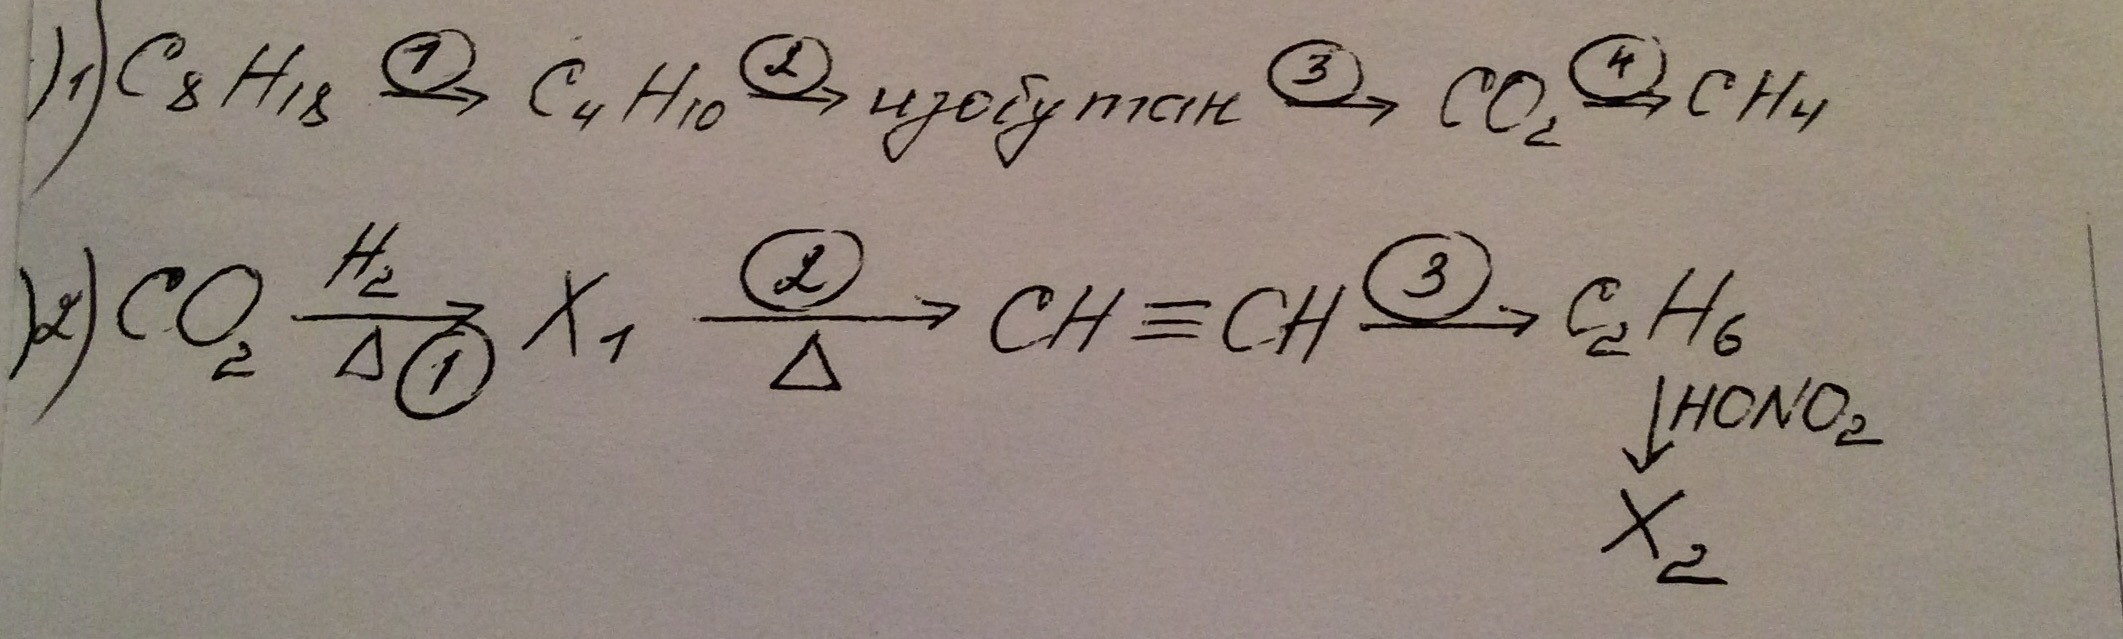 1) C₈H₁₈ →① C₄H₁₀ →② изобутан →③ CO₂ →④ CH₄
2) CO₂ H₂ → Δ ① X₁ ② → Δ CH≡CH ③ → C₂H₆
↓ HONO₂
X₂